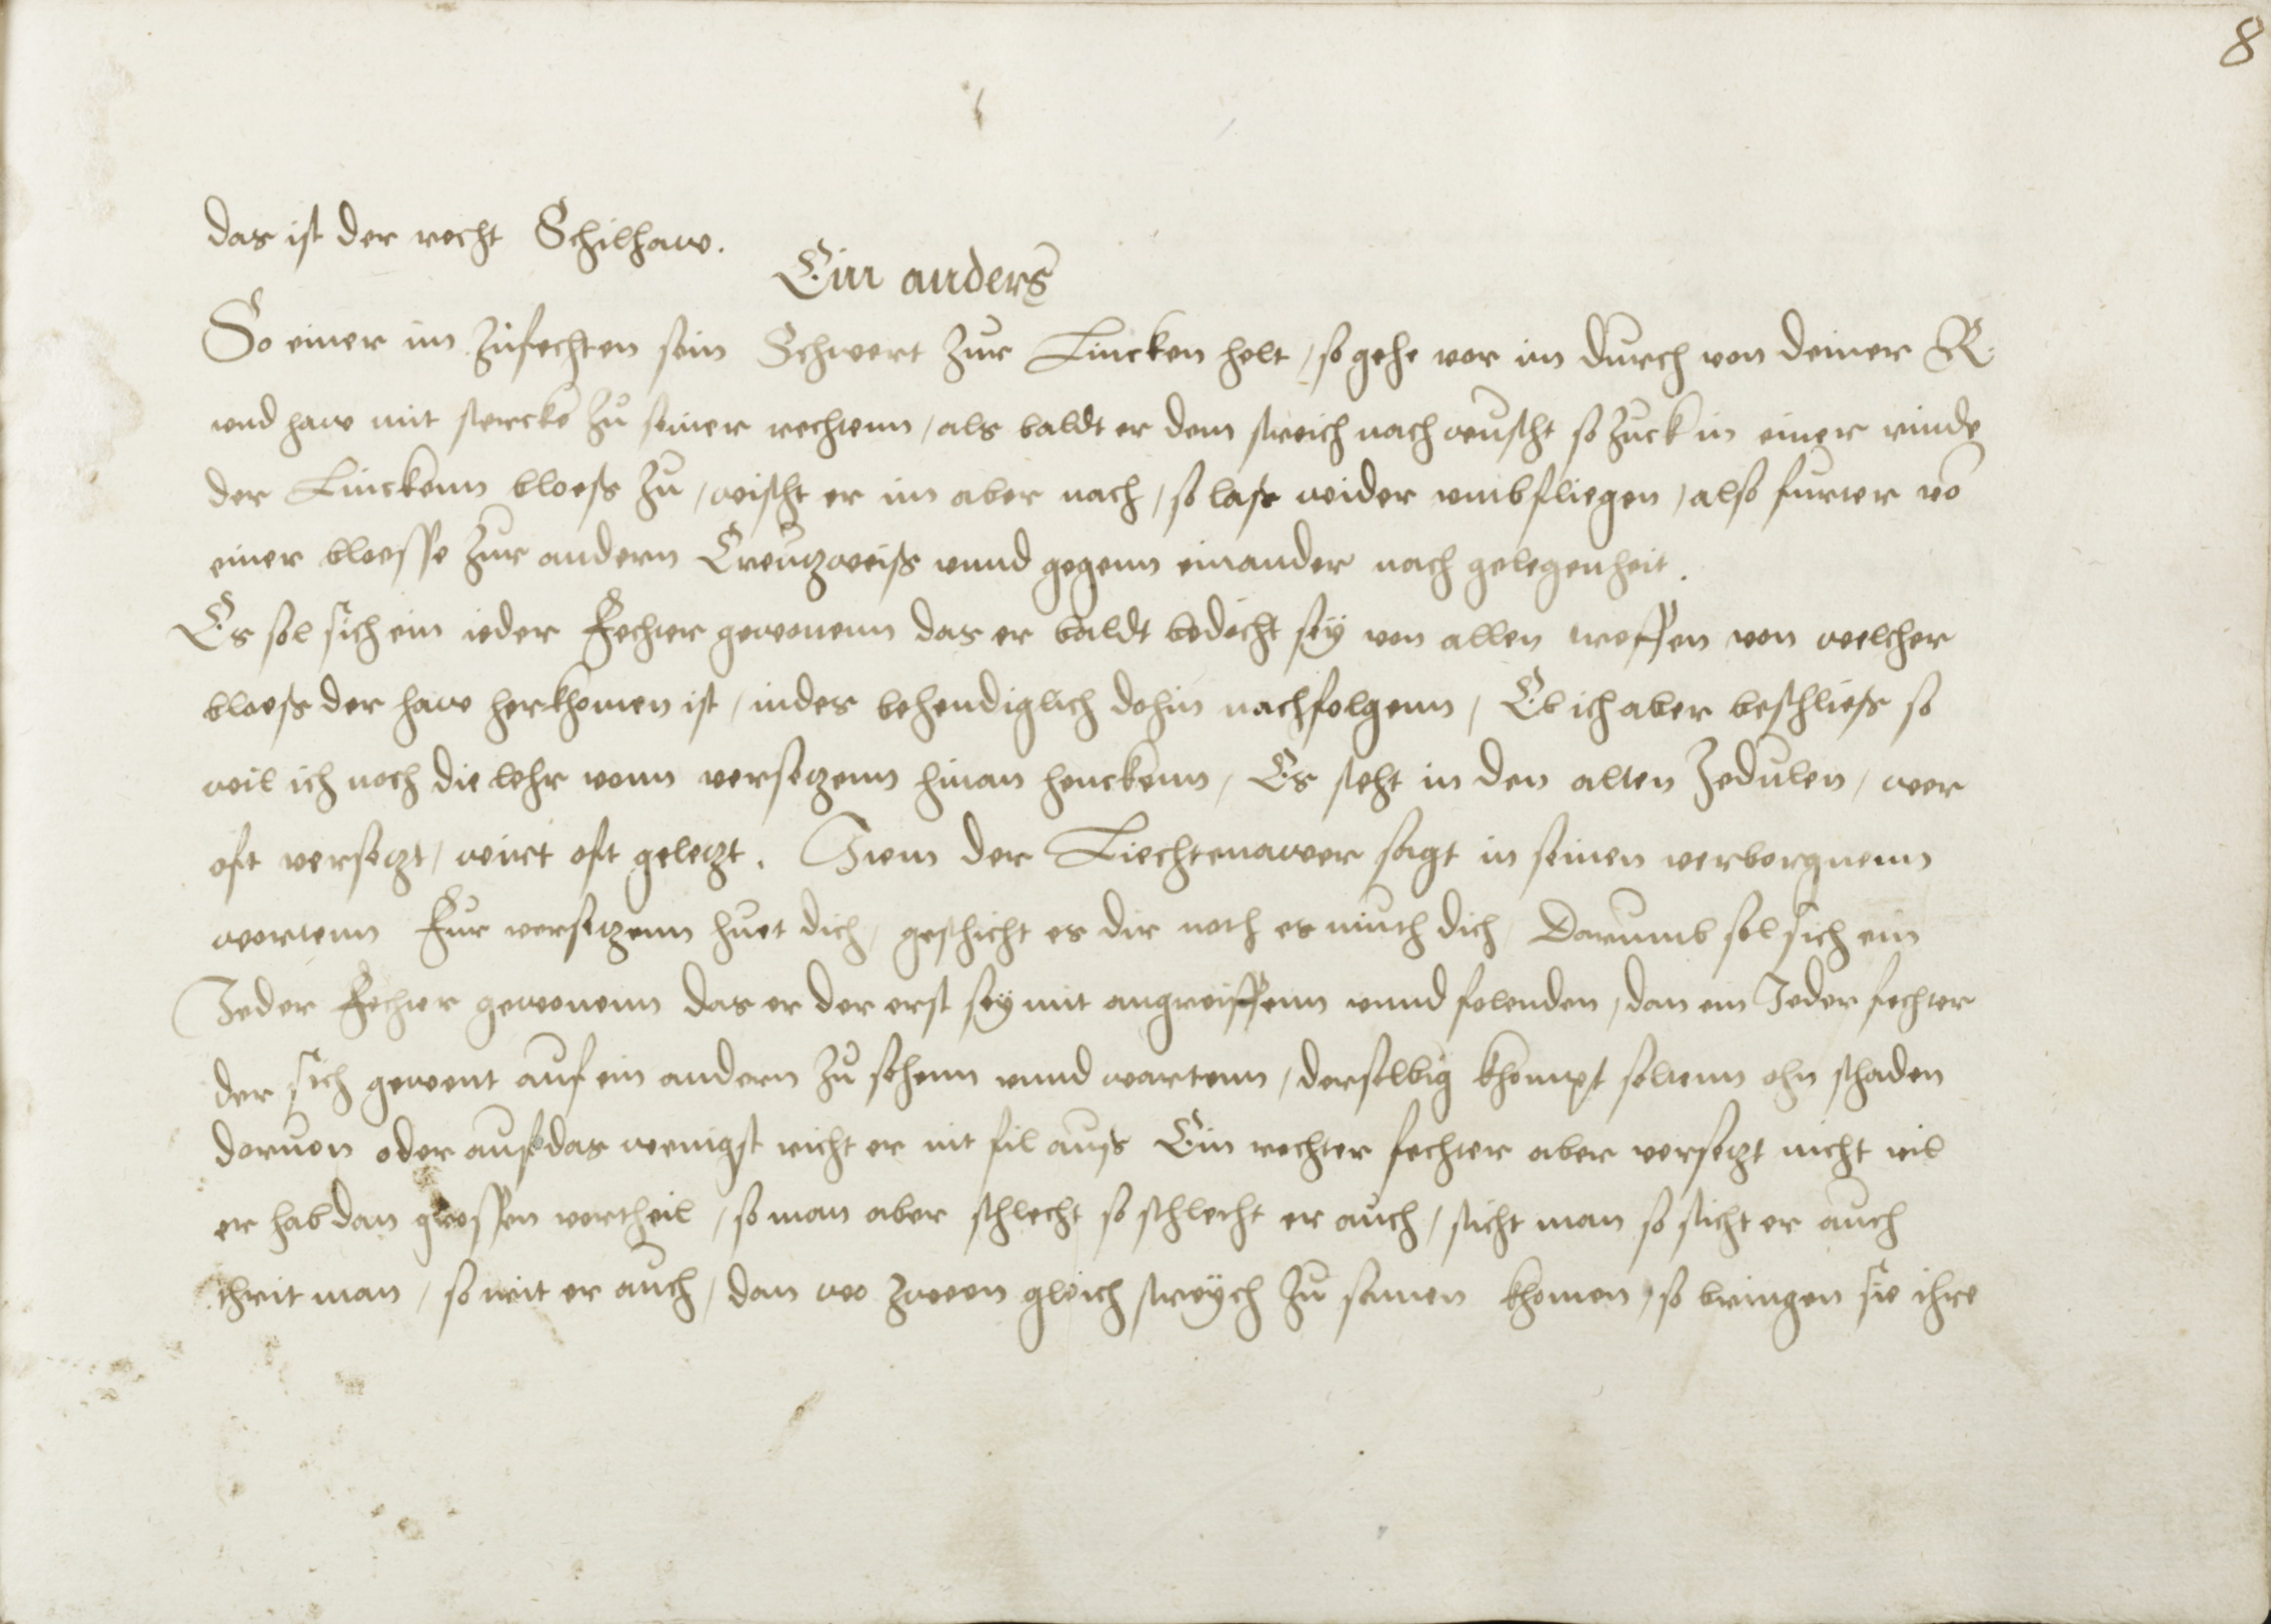 8
das ist der recht Schilhaw.
Ein anders
So einer im Zufechten sein Schwert zur Lincken helt / so gehe vor im durch von deiner R.
vnd haw mit stercke zu seiner rechtenn / als baldt er dem streich nach wuscht so zuck in einer rinde
der Linckenn bloess zu / wischt er im aber nach / so lass wider vmbfliegen / also furter vō
einer bloesse zur andern Creutzweiss vnnd gegenn einander nach gelegenheit.
Es sol sich ein ieder Fechter gewonenn das er baldt bedacht sey von allen treffen von welcher
bloess der haw herkhomen ist / indes behendiglich dohin nachfolgenn / Eb ich aber beschliess so
wil ich noch die lehr vonn versetzenn hinan henckenn / Es steht in den alten Zedulen / wer
oft versetzt / wirt oft geletzt. Item der Liechtenawer sagt in seinen verborgnenn
wortenn Fur versetzenn huet dich / geschicht es dir noth es muth dich / Darumb sol sich ein
Jeder Fechter gewonenn das er der erst sey mit angreiffenn vnnd folenden / dan ein Jeder fechter
der sich gewent auf ein andern zu sehenn vnnd wartenn / derselbig khompt seltenn ohn schaden
daruon oder auf das wenigst richt er nit fil auss Ein rechter fechter aber versetzt nicht vil
er hab dan grossen vortheil / so man aber schlecht so schlecht er auch / sticht man so sticht er auch
thrit man / so trit er auch / dan wo zween gleich streych zu samen khomen / so bringen sie ihre